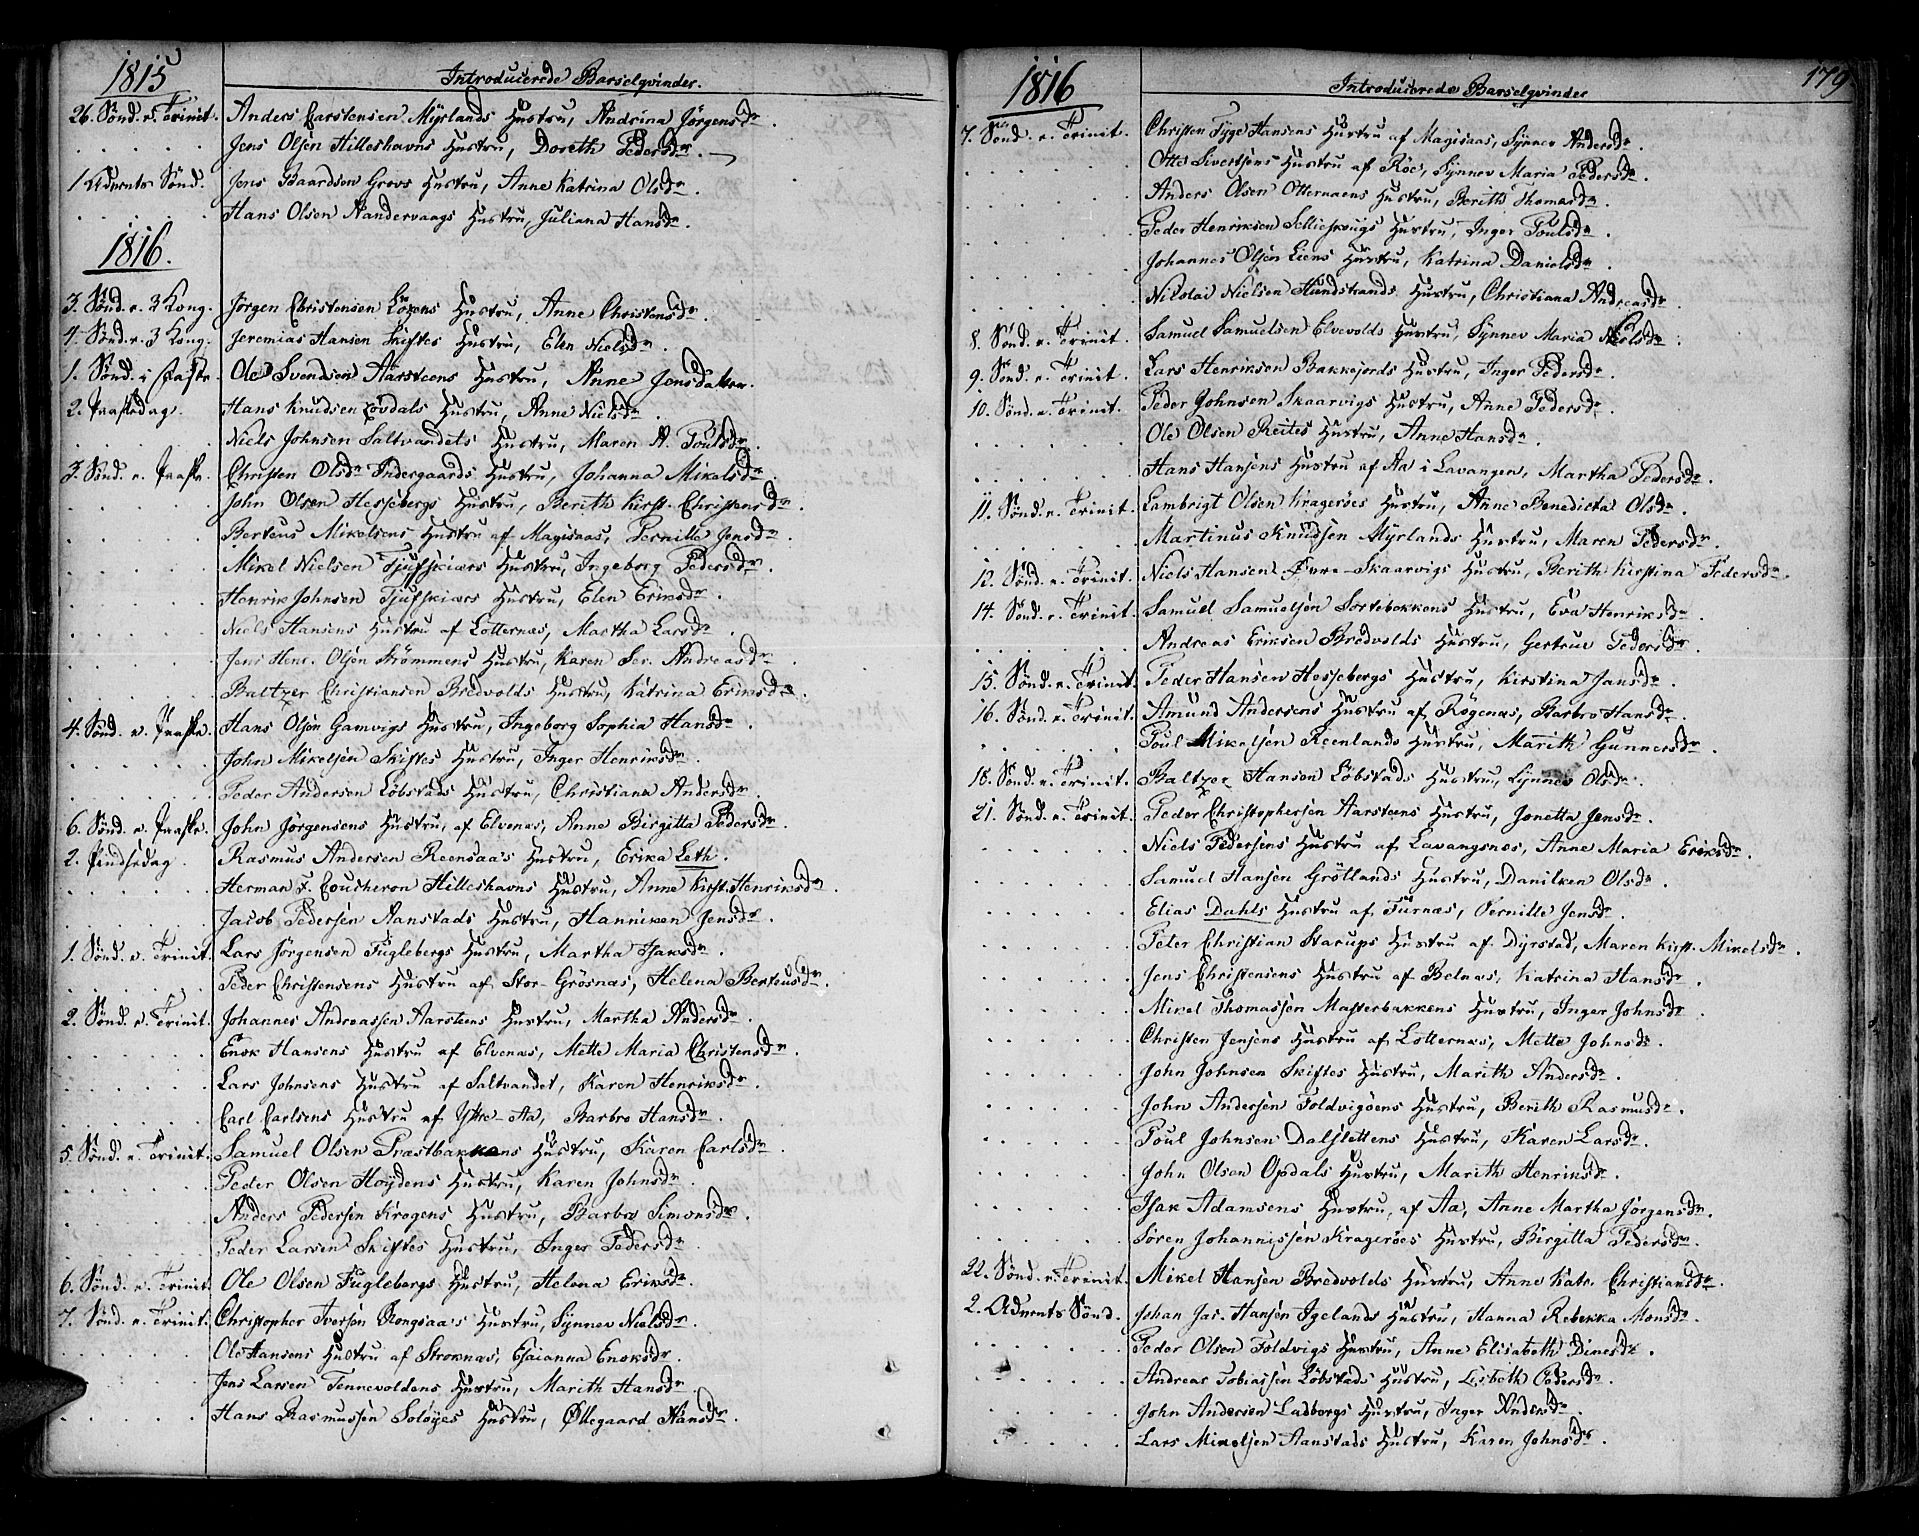 1815
Introducerede Barselqvinder.
26. Sönd. e. Trinit. Anders Carstensen Myrlands Hustru, Andrina Jörgensdr.
Jens Olsen Hilleshavns Hustru, Doreth Pedersdr.
1 Advents Sönd. Jens Baardsen Grovs Hustru, Anne Katrina Olsdr.
Hans Olsen Nandervaags Hustru, Juliana Hansdr.
1816.
3. Sönd. e. 3 Kong. Jörgen Christensen Hustru, Anne Christensdr.
4. Sönd. e. 3 Kong. Jeremias Hansen Skiftes Hustru, Elen Nielsdr.
1. Sönd. i Faste Ole Svendsen Aarsteens Hustru, Anne Jonsdatter.
2. Paaskedag. Hans Knudsen Hustru, Anne Nielsdr.
Niels Johnsen Saltvandets Hustru, Maren A. Poulsdr.
3. Sönd. e. Paaske. Christen Olsdr Indergaards Hustru, Johanna Mikelsdr.
John Olsen Hessebergs Hustru, Berith Kirst. Christensdr.
Berteus Mikelsens Hustru af Magisaas, Pernille Jensdr.
Mikel Nielsen Tjufskiærs Hustru, Ingeborg Pedersdr.
Henrik Johnsen Tjufskiærs Hustru, Elen Eriksdr.
Niels Hansens Hustru af Lotternæs, Martha Larsdr.
Jens Henr. Olsen Strömmens Hustru, Karen Ser. Andreasdr.
Baltzer Christiansen Bredvolds Hustru, Katrina Eriksdr.
4. Sönd. e. Paaske. Hans Olsen Gamvigs Hustru, Ingeborg Sophia Hansdr.
John Mikelsen Skiftes Hustru, Inger Henriksdr.
Peder Andersen Löbstads Hustru, Christiana Andersdr.
6. Sönd. e. Paaske. John Jörgensens Hustru, af Elvenæs, Anne Birgitta Pedersdr.
2. Pindsedag. Rasmus Andersen Reensaa's Hustru, Erika Leth.
Herman F. Coucheron Hilleshavns Hustru, Anne Kirst. Henriksdr.
Jacob Pedersen Aanstads Hustru, Henniken Jensdr.
1. Sönd. e. Trinit. Lars Jörgensen Fuglebergs Hustru, Martha Isaksdr.
Peder Christensens Hustru af Stor-Grösnæs, Helena Berteusdr.
2. Sönd. e. Trinit. Johannes Andreassen Aarsteens Hustru, Martha Andersdr.
Enok Hansens Hustru af Elvenæs, Mette Maria Christensdr.
Lars Johnsens Hustru af Saltvandet, Karen Henriksdr.
Carl Carlsens Hustru af Ytre-Aa, Barbro Hansdr.
5. Sönd. e. Trinit. Samuel Olsen Præstbakkens Hustru, Karen Carlsdr.
Peder Olsen Höydens Hustru, Karen Johnsdr.
Anders Pedersen Krogens Hustru, Barbro Simonsdr.
Peder Larsen Skiftes Hustru, Inger Pedersdr.
6. Sönd. e. Trinit. Ole Olsen Fuglebergs Hustru, Helena Eriksdr.
7. Sönd. e. Trinit. Christopher Iversen Rongsaa's Hustru, Synnev Nielsdr.
Ole Hansens Hustru af Stroknæs, Esaianna Enoksdr.
Jens Larsen Tennevoldens Hustru, Marith Hansdr.
Hans Rasmussen Soløyes Hustru, Øllegaard Hansdr.
1816
Introducerede Barselqvinder
179
7. Sönd. e. Trinit. Christen Tyge Hansens Hustru af Magisaas, Synnev Andersdr.
Otte Sivertsens Hustru af Röe, Synnev Maria Pedersdr.
Anders Olsen Otternæs Hustru, Berith Thomasdr.
Peder Henriksen Hustru, Inger Poulsdr.
Johannes Olsen Liens Hustru, Katrina Danielsdr.
Nikolai Nielsen Hundstrands Hustru, Christiana Andreasdr.
8. Sönd. e. Trinit. Samuel Samuelsen Elvevolds Hustru, Synnev Maria Nielsdr.
9. Sönd. e. Trinit. Lars Henriksen Bakkejords Hustru, Inger Pedersdr.
10. Sönd. e. Trinit. Peder Johnsen Skaarvigs Hustru, Anne Pedersdr.
Ole Olsen Reites Hustru, Anne Hansdr.
Hans Hansens Hustru af Aa i Lavangen, Martha Pedersdr.
11. Sönd. e. Trinit. Lambrigt Olsen Krageröes Hustru, Anne Benedicta Olsdr.
Martinus Knudsen Myrlands Hustru, Maren Pedersdr.
12. Sönd. e. Trinit. Niels Hansen Øvre-Skaarvigs Hustru, Berith Kirstina Pedersdr.
14. Sönd. e. Trinit. Samuel Samuelsen Sortebakkens Hustru, Eva Henriksdr.
Andreas Eriksen Bredvolds Hustru, Gertrue Pedersdr.
15. Sönd. e. Trinit. Peder Hansen Hessebergs Hustru, Kirstina Jansdr.
16. Sönd. e. Trinit. Amund Andersens Hustru af Rögenæs, Barbro Hansdr.
Poul Mikelsen Reenlands Hustru, Marith Gunnersdr.
18. Sönd. e. Trinit. Baltzer Hansen Löbstads Hustru, Synnev Olsdr.
21. Sönd. e. Trinit. Peder Christophersen Aarsteens Hustru, Jonetta Jensdr.
Niels Pedersens Hustru af Lavangsnæs, Anne Maria Eriksdr.
Samuel Hansen Grötlands Hustru, Daniken Olsdr.
Elias Dahls Hustru af Furnæs, Pernille Jensdr.
Peter Christian Starups Hustru af Dyrstad, Maren Kirst. Mikelsdr.
Jens Christensens Hustru af Belnæs, Katrina Hansdr.
Mikel Thomassen Masterbakkens Hustru, Inger Johnsdr.
Christen Jensens Hustru af Lotternæs, Mette Johnsdr.
John Johnsen Skiftes Hustru, Marith Andersdr.
John Andersen Foldvigöens Hustru, Berith Rasmusdr.
Poul Johnsen Dalslettens Hustru, Karen Larsdr.
John Olsen Opdals Hustru, Marith Henriksdr.
Isak Adamsens Hustru, af Aa, Anne Martha Jörgensdr.
Sören Johannissen Krageröes Hustru, Birgitta Pedersdr.
22. Sönd. e. Trinit. Mikel Hansen Bredvolds Hustru, Anne Katr. Christiansdr.
2. Advents Sönd. Johan Jac. Hansen Igelands Hustru, Hanna Rebekka Monsdr.
Peder Olsen Foldvigs Hustru, Anne Elisabeth Dinesdr.
Andreas Tobiassen Löbstads Hustru, Lisbeth Pedersdr.
John Andersen Ladbergs Hustru, Inger Andersdr.
Lars Mikelsen Aanstads Hustru, Karen Johnsdr.